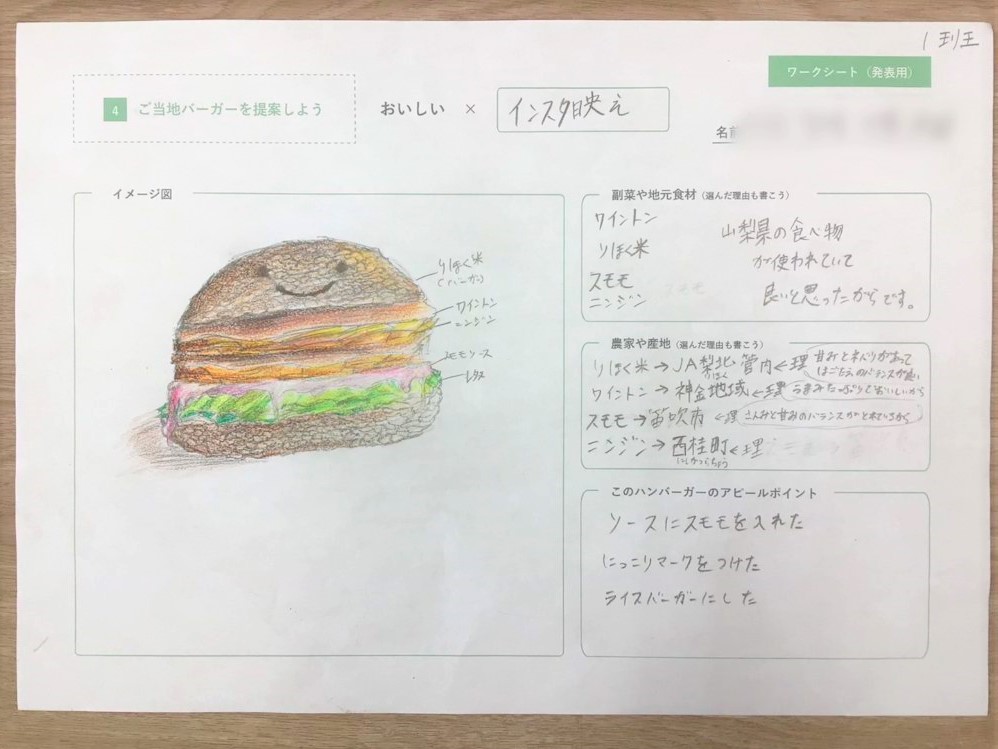 1班
ワークシート（発表用）
4 ご当地バーガーを提案しよう
おいしい × インスタ映え
名前
イメージ図
りほく米
(バーガー)
ワイントン
ニンジン
スモモソース
レタス
副菜や地元食材（選んだ理由も書こう）
ワイントン
りほく米
スモモ
ニンジン
山梨県の食べ物
が使われていて
良いと思ったからです。
農家や産地（選んだ理由も書こう）
りほく米→JA梨北管内←理 甘みとネバリがあって
りほく
はごたえのバランスが良い
ワイントン→神金地域←理 うまみたっぷりでおいしいから
スモモ→笛吹市←理 さんみと甘みのバランスがとれているから
ニンジン→西桂町←理
にしかつらちょう
このハンバーガーのアピールポイント
ソースにスモモを入れた
にっこりマークをつけた
ライスバーガーにした